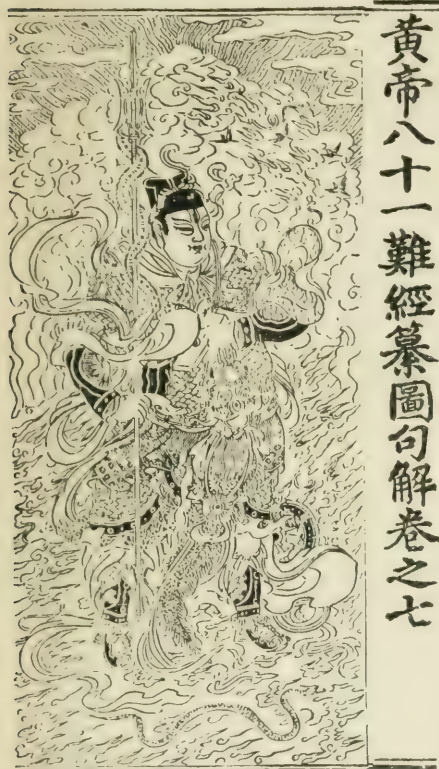 黃帝八十一難經纂圖句解卷之七